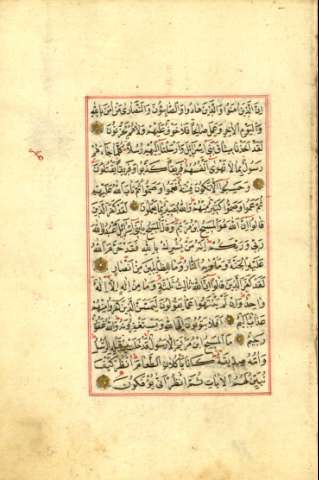 اِنَّ الَّذِينَ اٰمَنُوا وَالَّذِينَ هَادُوا وَالصَّابِؤُنَ وَالنَّصَارٰى مَنْ اٰمَنَ بِاللّٰهِ
وَالْيَوْمِ الْاٰخِرِ وَعَمِلَ صَالِحًا فَلَا خَوْفٌ عَلَيْهِمْ وَلَا هُمْ يَحْزَنُونَ
لَقَدْ اَخَذْنَا مِيثَاقَ بَنِي اِسْرَائِيلَ وَاَرْسَلْنَا اِلَيْهِمْ رُسُلًا كُلَّمَا جَاءَهُمْ
رَسُولٌ بِمَا لَا تَهْوٰى اَنْفُسُهُمْ فَرِيقًا كَذَّبُوا وَفَرِيقًا يَقْتُلُونَ
وَحَسِبُوا اَلَّا تَكُونَ فِتْنَةٌ فَعَمُوا وَصَمُّوا ثُمَّ تَابَ اللّٰهُ عَلَيْهِمْ
ثُمَّ عَمُوا وَصَمُّوا كَثِيرٌ مِنْهُمْ وَاللّٰهُ بَصِيرٌ بِمَا يَعْمَلُونَ لَقَدْ كَفَرَ الَّذِينَ
قَالُوا اِنَّ اللّٰهَ هُوَ الْمَسِيحُ ابْنُ مَرْيَمَ وَقَالَ الْمَسِيحُ يَا بَنِي اِسْرَائِيلَ اعْبُدُوا اللّٰهَ
رَبِّي وَرَبَّكُمْ اِنَّهُ مَنْ يُشْرِكْ بِاللّٰهِ فَقَدْ حَرَّمَ اللّٰهُ
عَلَيْهِ الْجَنَّةَ وَمَأْوٰيهُ النَّارُ وَمَا لِلظَّالِمِينَ مِنْ اَنْصَارٍ
لَقَدْ كَفَرَ الَّذِينَ قَالُوا اِنَّ اللّٰهَ ثَالِثُ ثَلٰثَةٍ وَمَا مِنْ اِلٰهٍ اِلَّا اِلٰهٌ
وَاحِدٌ وَاِنْ لَمْ يَنْتَهُوا عَمَّا يَقُولُونَ لَيَمَسَّنَّ الَّذِينَ كَفَرُوا مِنْهُمْ
عَذَابٌ اَلِيمٌ اَفَلَا يَتُوبُونَ اِلَى اللّٰهِ وَيَسْتَغْفِرُونَهُ وَاللّٰهُ غَفُورٌ
رَحِيمٌ مَا الْمَسِيحُ ابْنُ مَرْيَمَ اِلَّا رَسُولٌ قَدْ خَلَتْ مِنْ قَبْلِهِ الرُّسُلُ
وَاُمُّهُ صِدِّيقَةٌ كَانَا يَأْكُلَانِ الطَّعَامَ اُنْظُرْ كَيْفَ
نُبَيِّنُ لَهُمُ الْاٰيَاتِ ثُمَّ انْظُرْ اَنّٰى يُؤْفَكُونَ